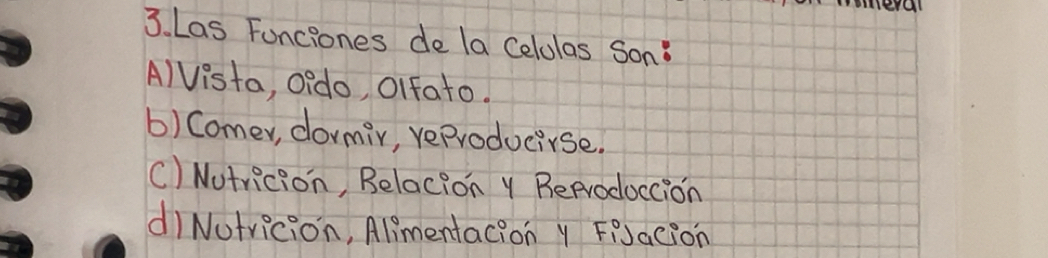 mineral
3. Las Funciones de la Celulas Son:
A) Vista, Oido, Olfato.
b) Comer, dormir, reProducirse.
C) Nutrición, Relación y Reproducción
d) Nutrición, Alimentación y Fijación